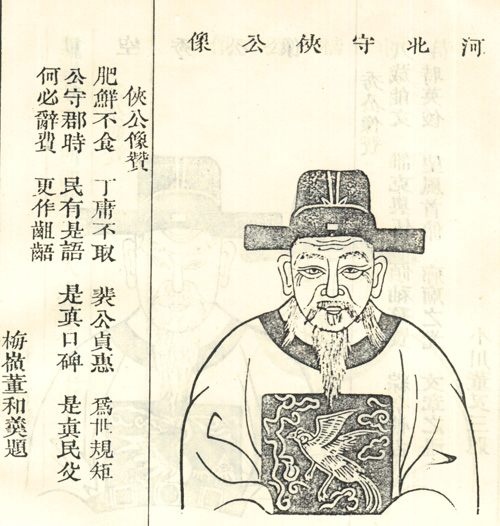 河北守俠公像
俠公像讚
肥鮮不食 丁庸不取 裴公貞惠 爲世規矩
公守郡時 民有是語 是眞口碑 是眞民父
何必辭費 更作齟齬
梅嶺董和羹題